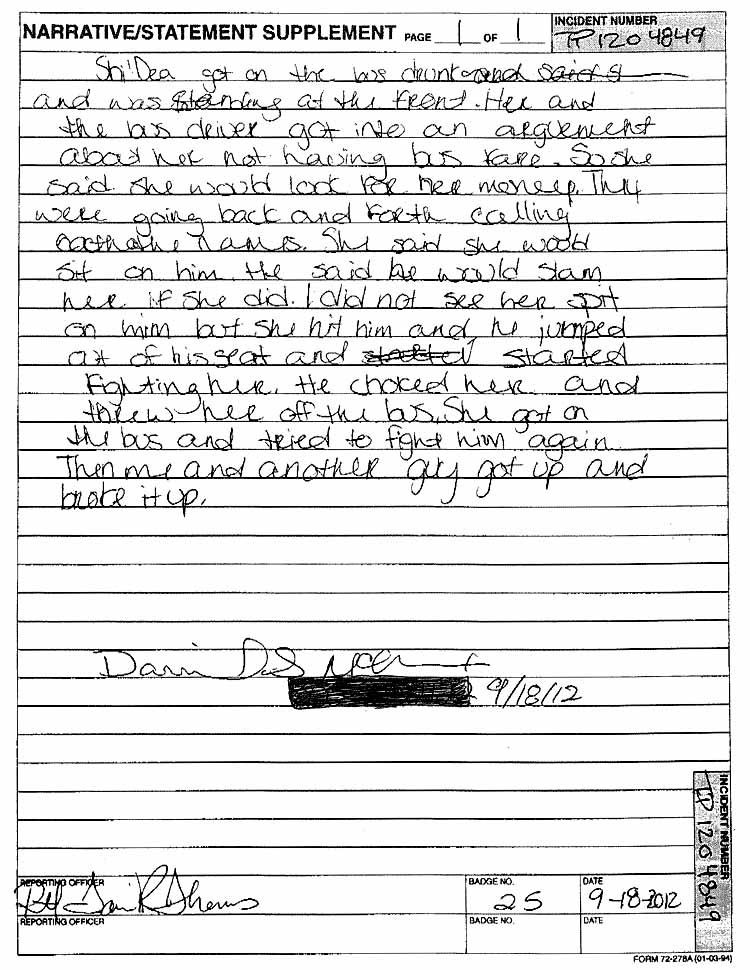 NARRATIVE/STATEMENT SUPPLEMENT PAGE 1 OF 1
INCIDENT NUMBER
TP1204849
Shi'Dea got on the bus drunk and said s
and was standing at the front. Her and
the bus driver got into an arguement
about her not having bus fare. So she
said she would look for her money. They
were going back and forth calling
names. She said she would
on him. He said he would slam
her if she did. I did not see her spit
on him but she hit him and he jumped
out of his seat and started started
Fighting her. He choked her and
threw her off the bus. She got on
the bus and tried to fight him again
Then me and another guy got up and
broke it up.
9/18/12
INCIDENT NUMBER
TP1204849
REPORTING OFFICER
BADGE NO.
25
DATE
9-18-2012
REPORTING OFFICER
BADGE NO.
DATE
FORM 72-278A (01-03-94)